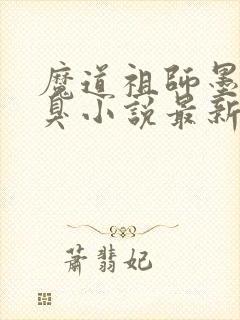 魔道祖師墨
臭小說最新
蕭翡妃